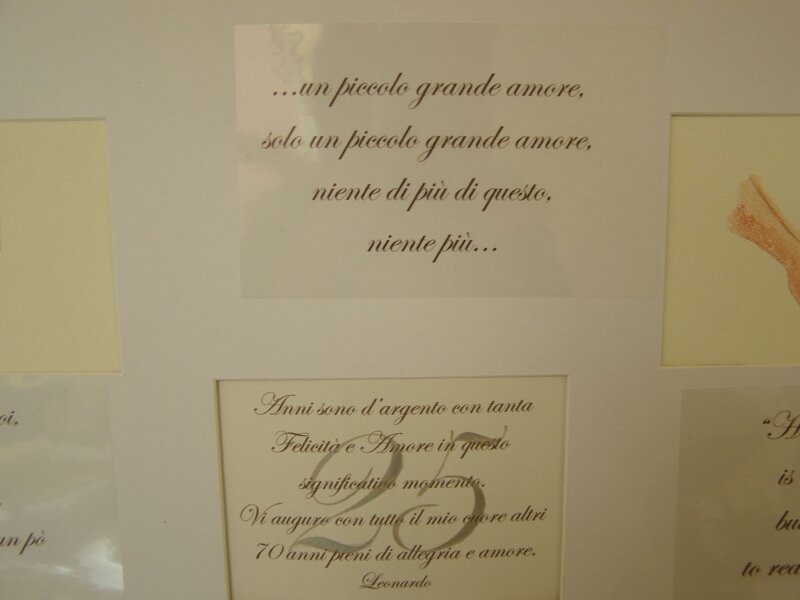 ...un piccolo grande amore,
solo un piccolo grande amore,
niente di più di questo,
niente più...
25
Anni sono d'argento con tanta
Felicità e Amore in questo
significativo momento.
Vi auguro con tutto il mio cuore altri
70 anni pieni di allegria e amore.
Leonardo
un pò
is
to